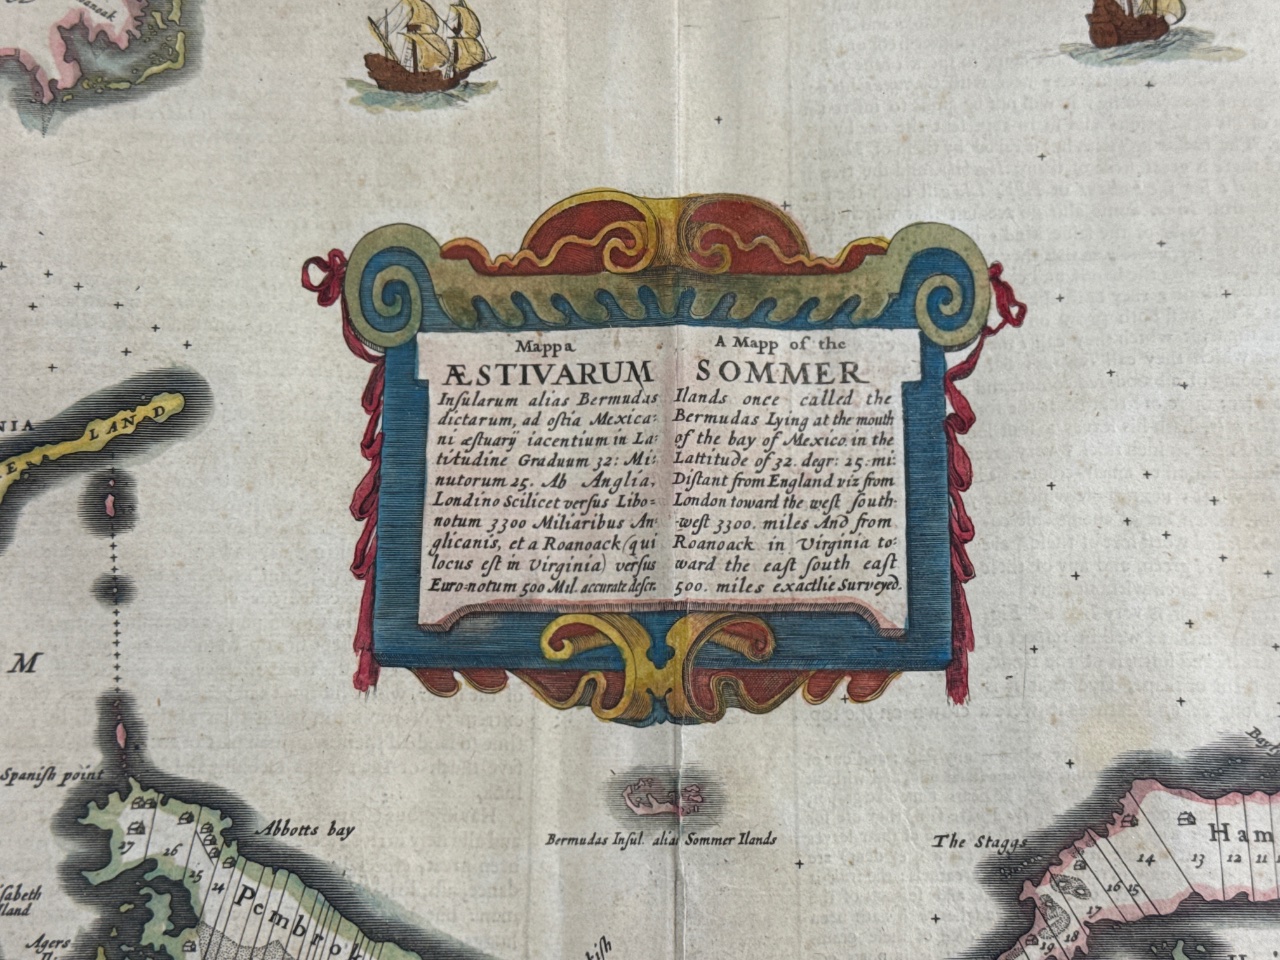 Mappa
ÆSTIVARUM
Inſularum alias Bermudas
dictarum, ad oſtia Mexica:
ni æſtuarij iacentium in La:
titudine Graduum 32: Mi:
nutorum 25. Ab Anglia,
Londino Scilicet verſus Libo=
notum 3300 Miliaribus An:
glicanis, et a Roanoack (qui
locus eſt in Virginia) verſus
Euro=notum 500 Mil. accurate deſcr.
A Mapp of the
SOMMER
Ilands once called the
Bermudas Lying at the mouth
of the bay of Mexico in the
Lattitude of 32. degr: 25. mi:
Diſtant from England viz from
London toward the weſt ſouth-
-weſt 3300. miles And from
Roanoack in Virginia to:
ward the eaſt ſouth eaſt
500. miles exactlie Surveyed.
LAND
M
Spaniſh point
Abbotts bay
27
26
25
24
Pembrok
Agers
Bermudas Inſul. alias Sommer Ilands
The Staggs
Ham
14
13
12
11
16
15
17
18
19